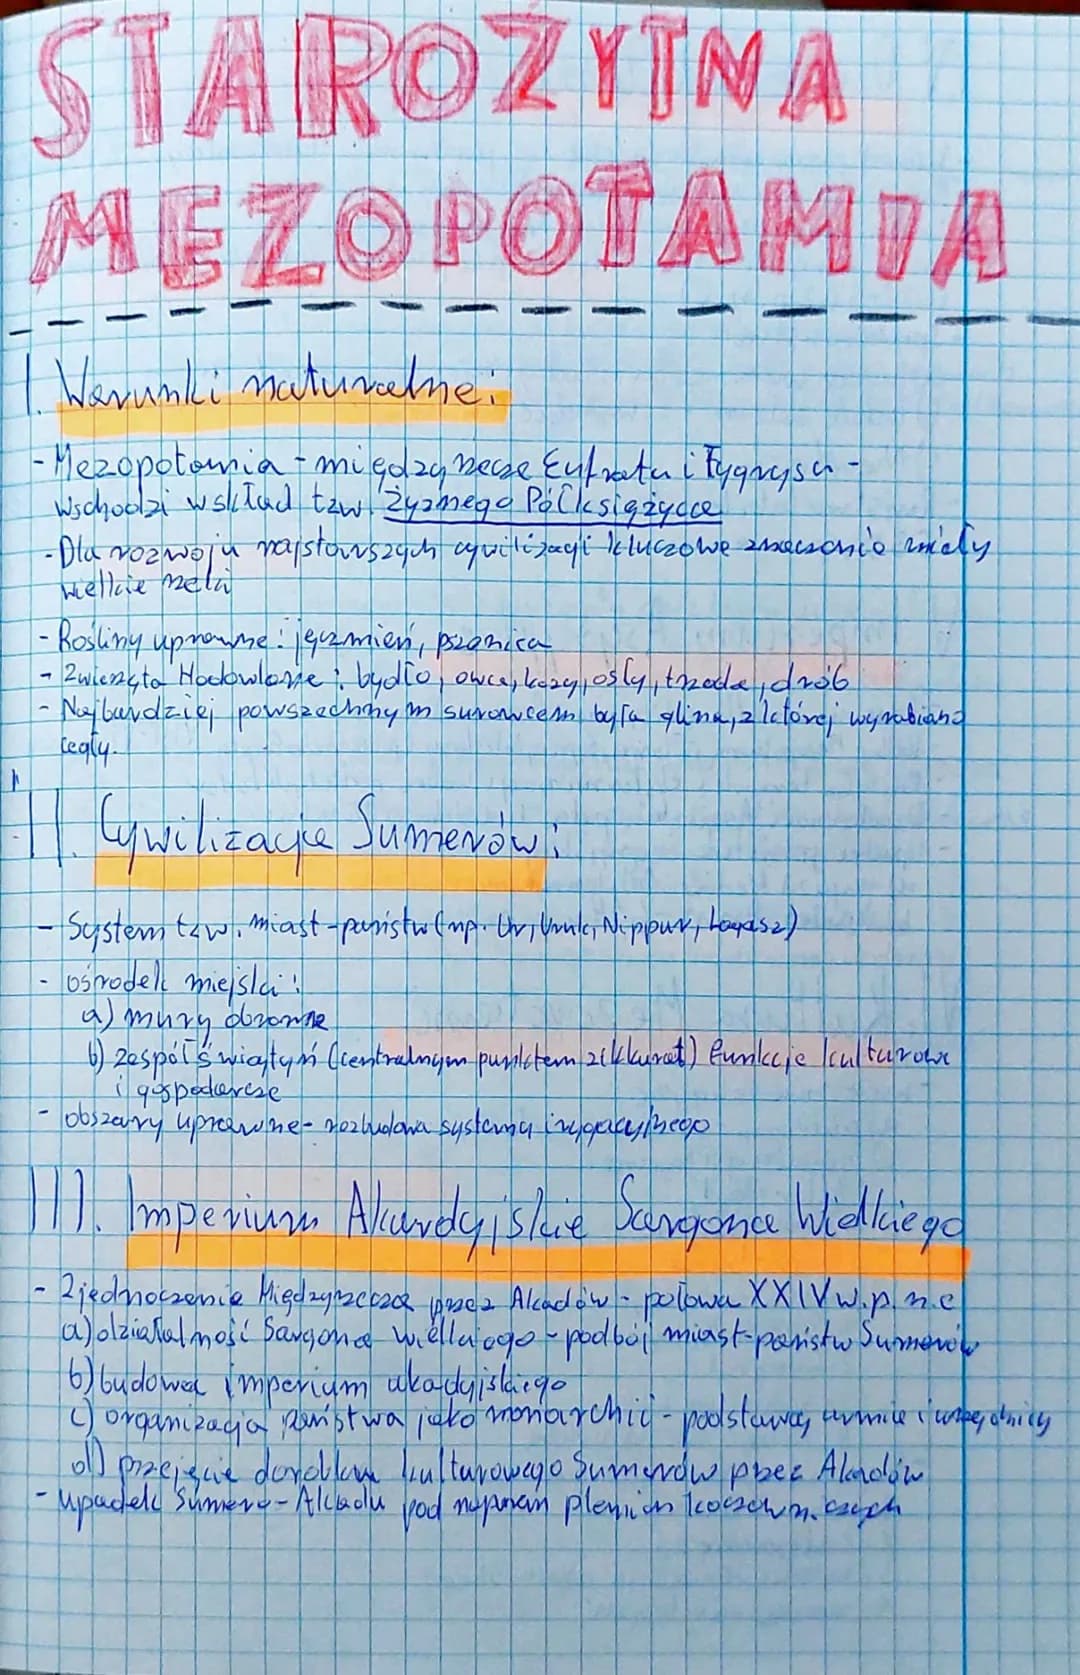 STAROŻYTNA
MEZOPOTAMIA
I. Warunki naturalne:
- Mezopotamia - międzyrzecze Eufratu i Tygrysu -
wschodzi w skład tzw. Żyznego Półksiężyca
- Dla rozwoju najstarszych cywilizacji kluczowe znaczenie miały
wielkie rzeki
- Rośliny uprawne: jęczmień, pszenica
- Zwierzęta Hodowlane: bydło, owce, kozy, osły, trzoda, drób
- Najbardziej powszechnym surowcem była glina, z której wyrabiano
cegły.
II. Cywilizacja Sumerów:
- System tzw. miast-państw (np. Ur, Uruk, Nippur, Lagasz)
- ośrodek miejski:
a) mury obronne
b) zespół świątyń (centralnym punktem zikkurat) funkcje kulturowe
i gospodarcze
- obszary uprawne - rozbudowa systemu irygacyjnego
III. Imperium Akardyjskie Sargona Wielkiego
- Zjednoczenie Międzyrzecza przez Akadów - połowa XXIV w. p. n. e
a) działalność Sargona Wielkiego - podbój miast-państw Sumerów
b) budowa imperium akadyjskiego
c) organizacja państwa jako monarchii - podstawą armia i urzędnicy
d) przejęcie dorobku kulturowego Sumerów przez Akadów
- upadek Sumero-Akadu pod naporem plemion koczowniczych